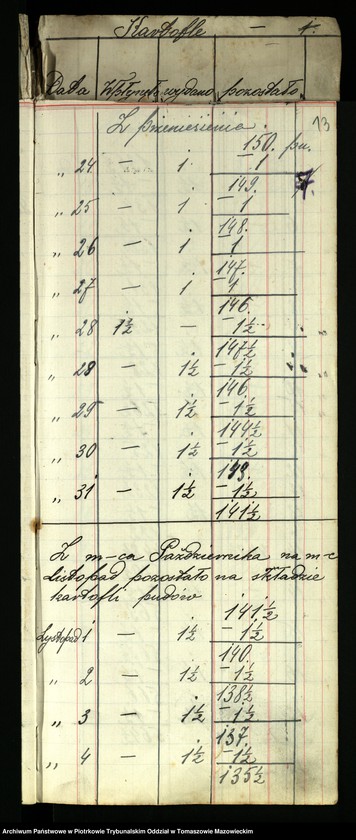 Kartofle — 1.
Data Wstąpiło wydano pozostało.
13
Z przeniesienia. 150. pu.
„ 24 — 1 — 1
149.
„ 25 — 1 — 1
148.
„ 26 — 1 1
147.
„ 27 — 1 — 1
146.
„ 28 1½ — — 1½
147½
„ 28 — 1½ — 1½
146.
„ 29 — 1½ — 1½
144½
„ 30 — 1½ — 1½
143.
„ 31 — 1½ — 1½
141½
Z m-ca Października na m-c
Listopad pozostało na składzie
kartofli pudów 141½
Lystopad 1 — 1½ — 1½
140.
„ 2 — 1½ — 1½
138½
„ 3 — 1½ — 1½
137.
„ 4 — 1½ — 1½
135½
Archiwum Państwowe w Piotrkowie Trybunalskim Oddział w Tomaszowie Mazowieckim